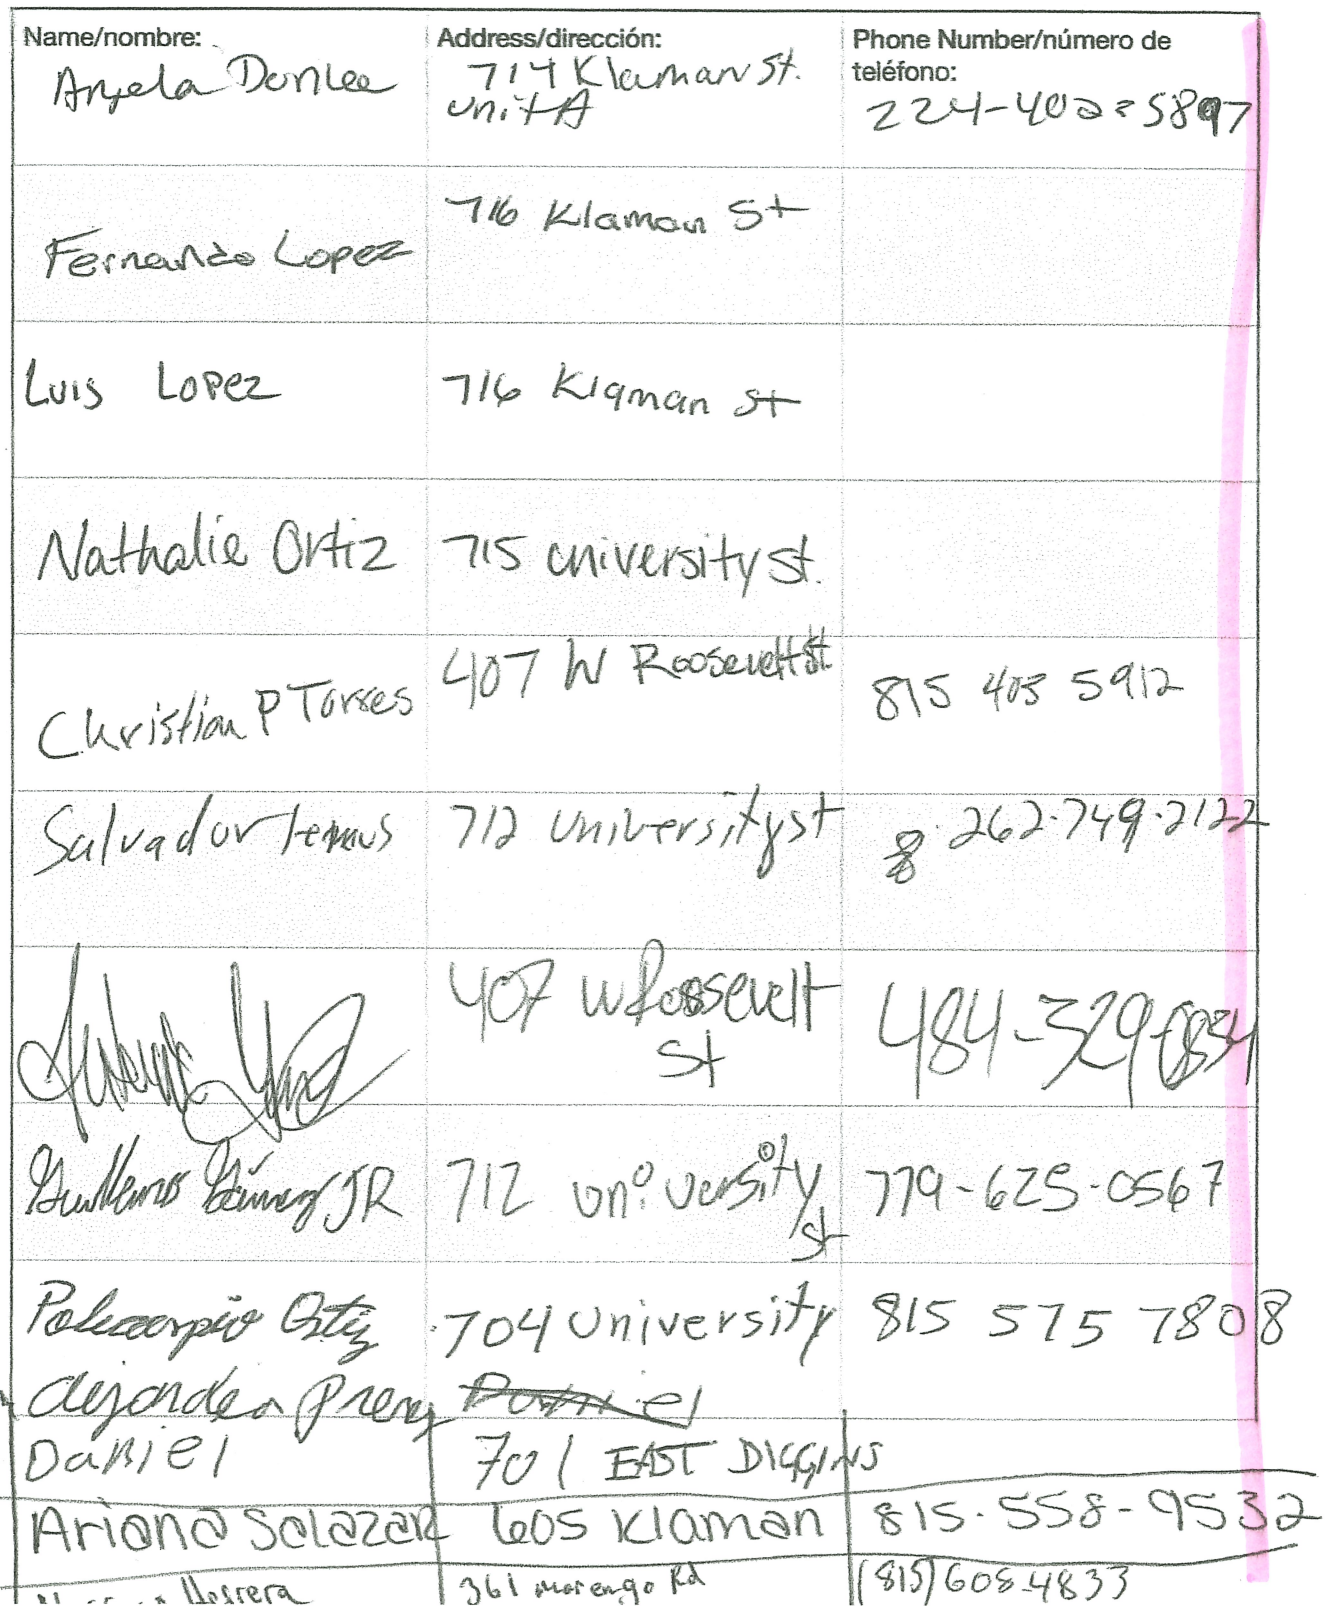 Name/nombre: Address/dirección: Phone Number/número de
teléfono:
Angela Donlea 714 Klaman St.
Unit A 224-402-5897
716 Klaman St
Fernando Lopez
Luis Lopez 716 Klaman st
Nathalie Ortiz 715 university st.
Christian P Torres 407 W Roosevelt St 815 403 5912
Salvador lemus 712 university st 262-749-2122
407 W Roosevelt
St 484-329-0834
JR 712 university
st 779-625-0567
Policarpio Ortiz 704 University 815 575 7808
Daniel
Daniel 701 EAST DIGGINS
Ariana Salazar 605 Klaman 815-558-9532
Herrera 361 Marengo Rd (815) 608-4833